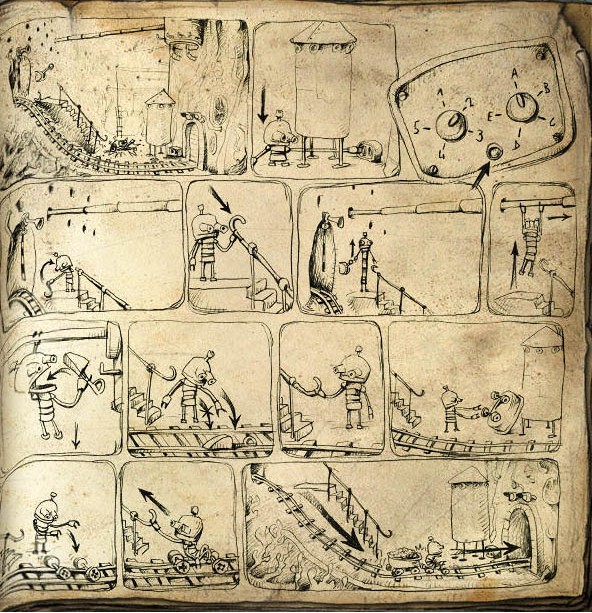 A
1 2 B
5 E
3 C
4 D